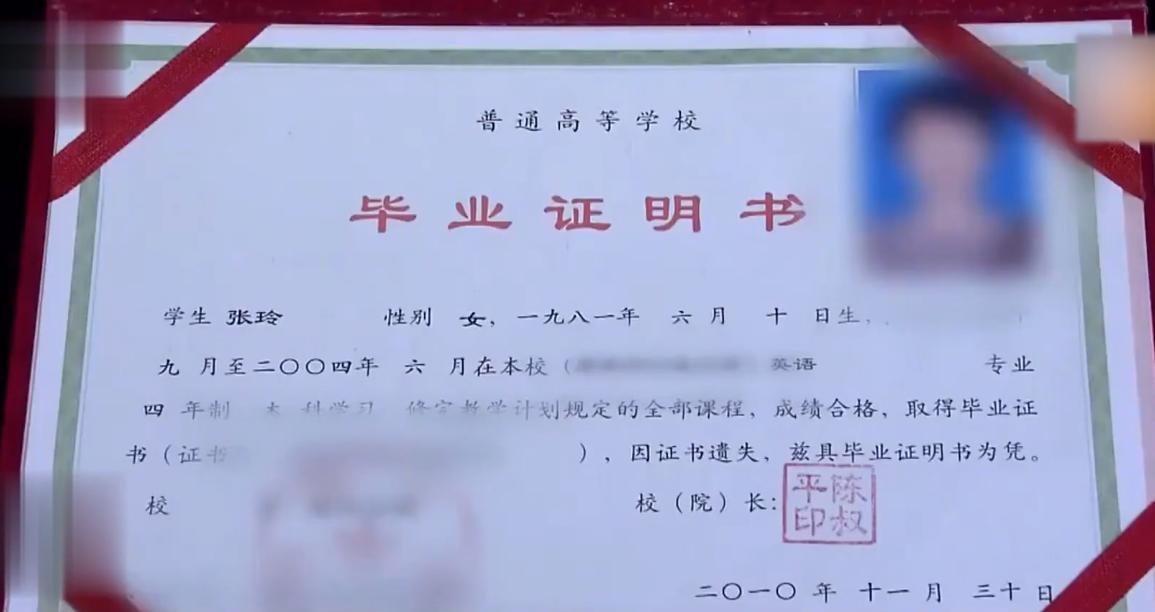 普通高等学校
毕业证明书
学生 张玲 性别 女，一九八一年 六 月 十 日生，
九 月至二〇〇四年 六 月在本校（ ）英语 专业
四 年制 本 科学习，修完教学计划规定的全部课程，成绩合格，取得毕业证
书（证书 ），因证书遗失，兹具毕业证明书为凭。
校 校（院）长：
陈叔平印
二〇一〇 年 十一 月 三十 日